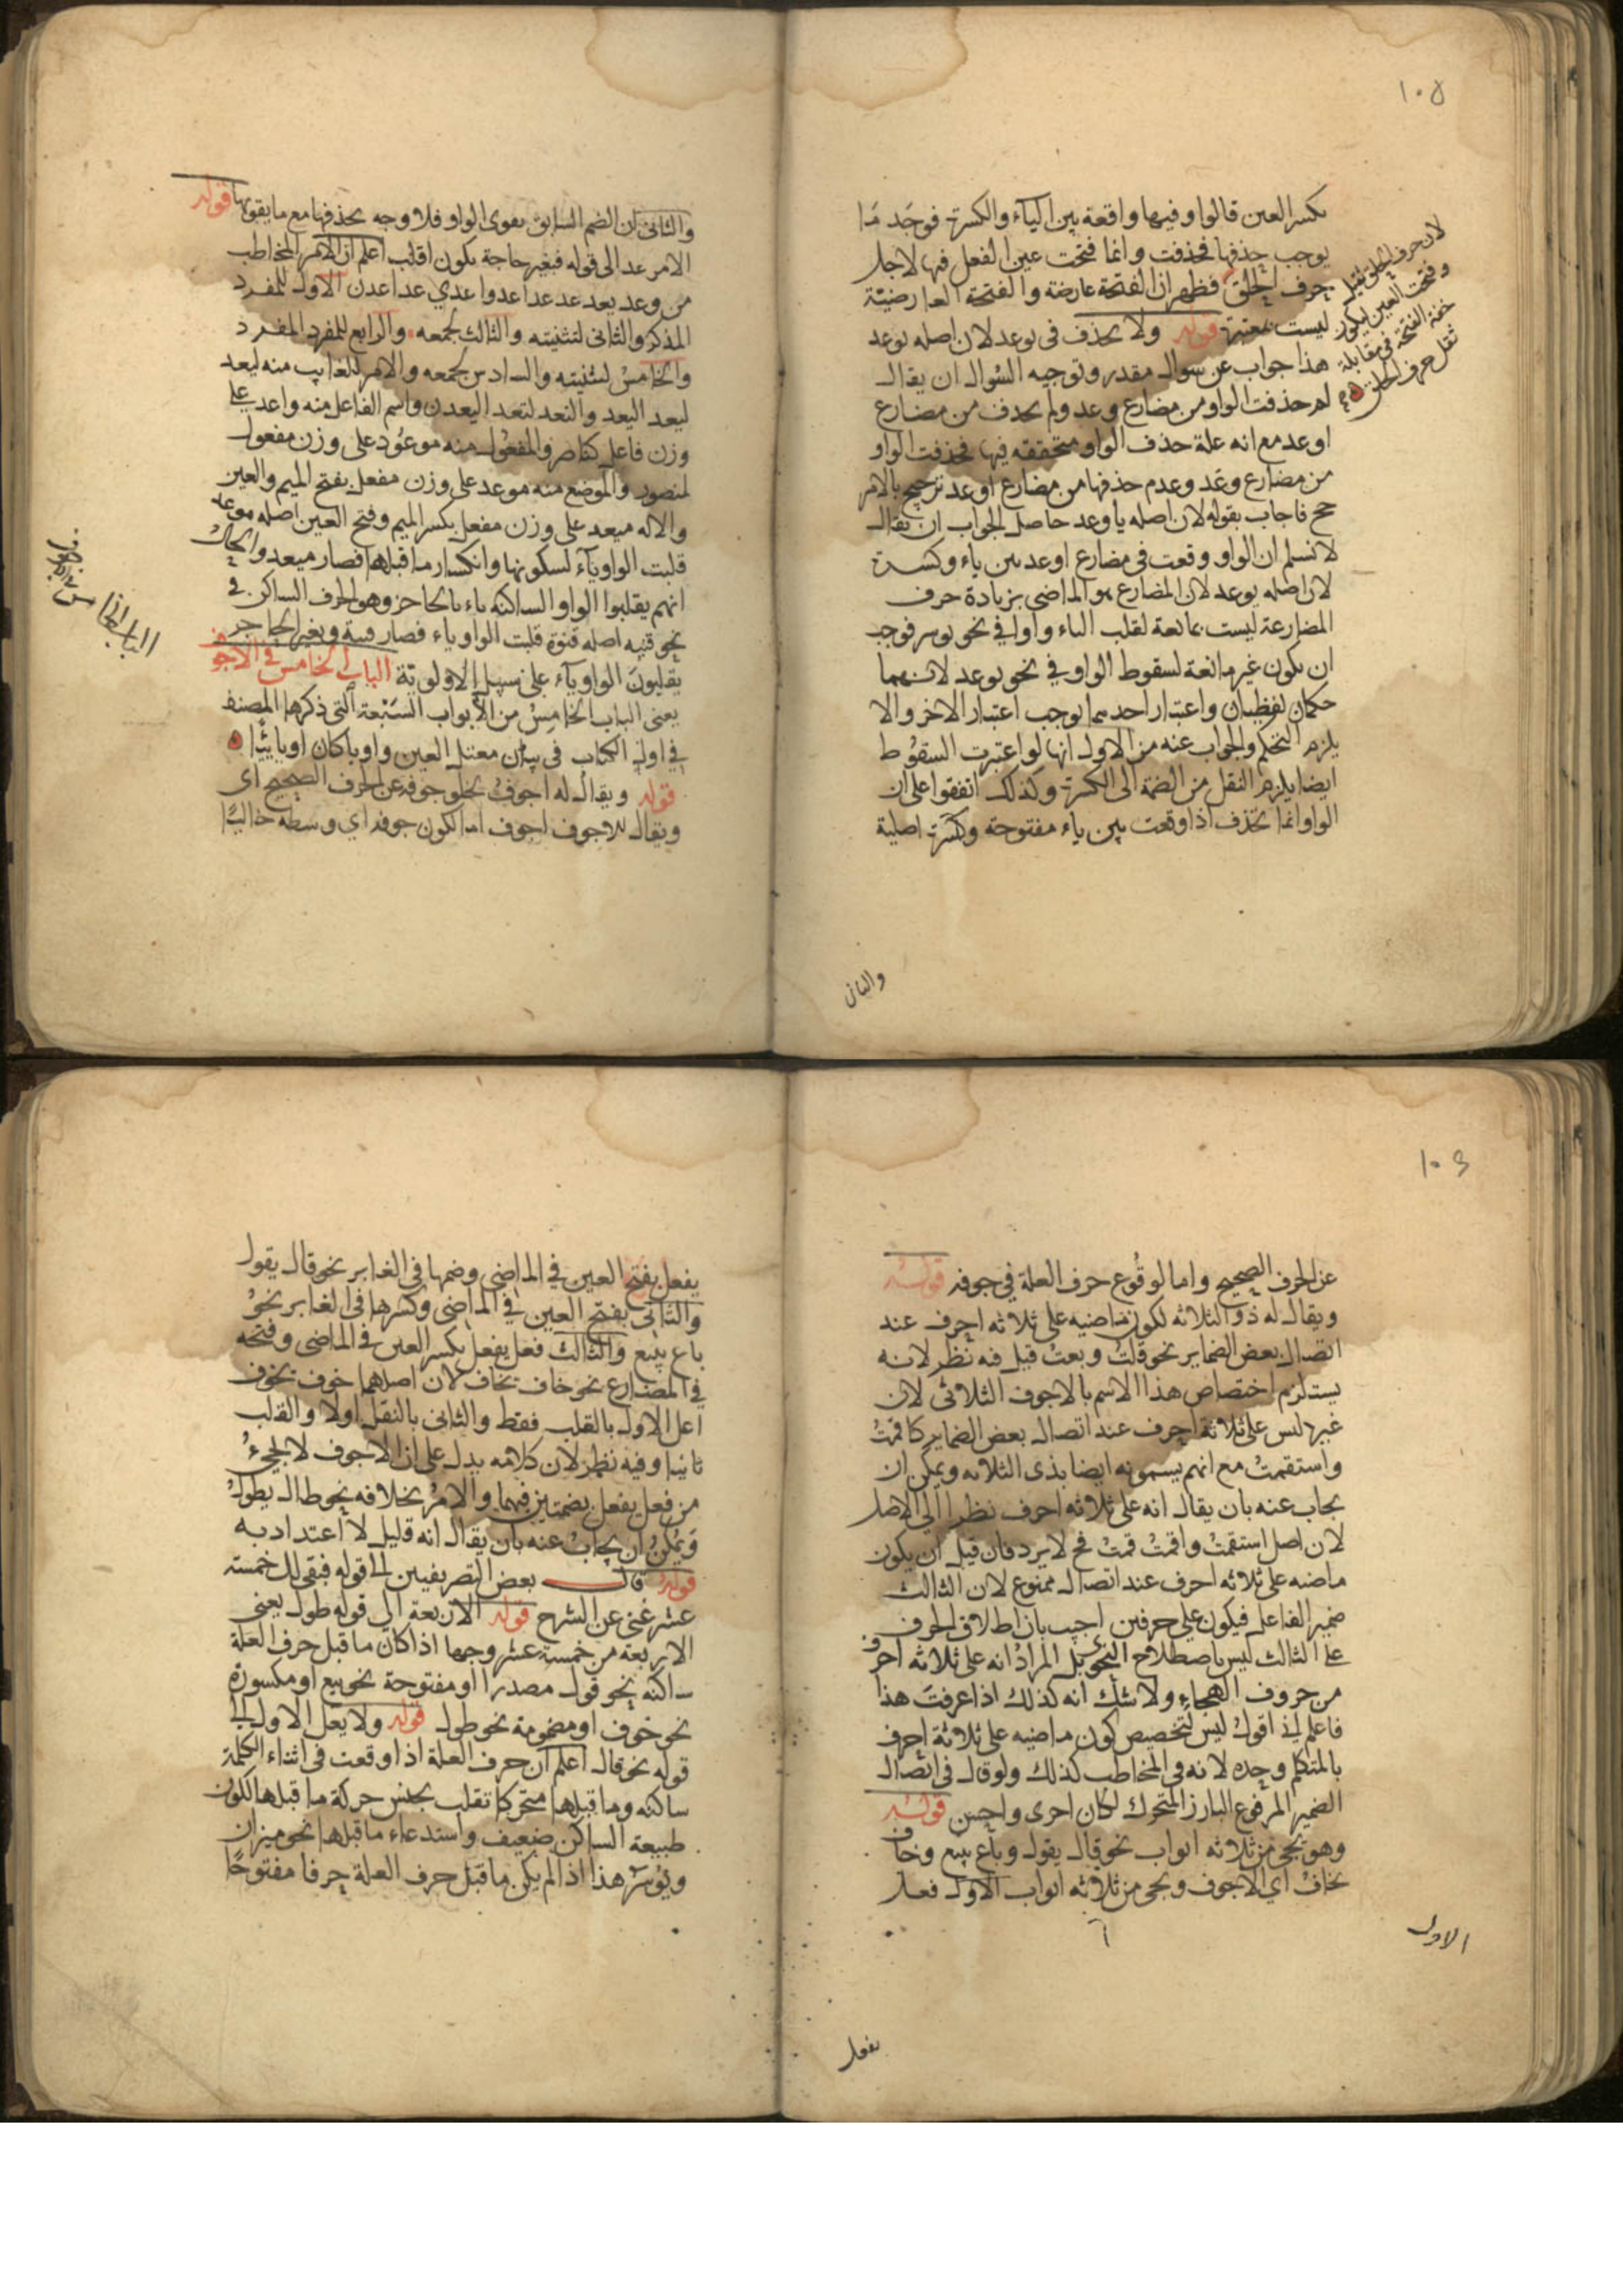 ١٠٨
بكسر العين قالوا وفيها واقعة بين الياء والكسرة فوجد ما
يوجب حذفها فحذفت وانما فتحت عين الفعل فيها لاجل
حرف الحلق فظهر ان الفتحة عارضة والفتحة العارضية
ليست بمعتبرة قوله ولا يحذف في يوعد لان اصله يوعد
هذا جواب عن سوال مقدر وتوجيه السوال ان يقال
لم حذفت الواو من مضارع وعد ولم يحذف من مضارع
اوعد مع انه علة حذف الواو متحققه فيها فحذفت الواو
من مضارع وعد وعدم حذفها من مضارع اوعد ترجيح بالامر
جح فاجاب بقوله لان اصله ياوعد حاصل الجواب ان يقال
لا نسلم ان الواو وقعت في مضارع اوعد بين ياء وكسرة
لان اصله يوعد لان المضارع هو الماضي بزيادة حرف
المضارعة ليست بمانعة لقلب الياء واوا في نحو يوسر فوجب
ان يكون غير مانعة لسقوط الواو في نحو يوعد لانهما
حكمان لفظيان واعتبار احدهما يوجب اعتبار الاخر والا
يلزم التحكم والجواب عنه من الاول انها لو اعتبرت السقوط
ايضا يلزم النقل من الضمة الى الكسرة وكذلك اتفقوا على ان
الواو انما تحذف اذا وقعت بين ياء مفتوحة وكسرة اصلية
لان حرف الحلق ثقيل
وفتحت العين ليكون
خفة الفتحة في مقابلة
ثقل حرف الحلق
والثاني
والثاني ان الضم السابق يقوي الواو فلا وجه بحذفها مع ما يقويها قوله
الامر عد الى قوله فبغير حاجة يكون اقلب اعلم ان الامر المخاطب
من وعد يعد عد عدا عدوا عدي عدا عدن الاول للمفرد
المذكر والثاني لتثنيته والثالث لجمعه والرابع للمفرد المفرد
والخامس لتثنيته والسادس لجمعه والامر للغايب منه ليعد
ليعد اليعد والتعد لتعد اليعدن واسم الفاعل منه واعد على
وزن فاعل كناصر والمفعول منه موعود على وزن مفعول
لمنصور والموضع منه موعد على وزن مفعل بفتح الميم والعين
والاله ميعد على وزن مفعل بكسر الميم وفتح العين اصله موعد
قلبت الواو ياء لسكونها وانكسار ما قبلها فصار ميعد والحال
انهم يقلبوا الواو الساكنه ياء بالحاجز وهو الحرف الساكن في
نحو قنيه اصله قنوة قلبت الواو ياء فصار قنية وبغير الحاجز
يقلبون الواو ياء على سبيل الاولوية الباب الخامس في الاجوف
يعني الباب الخامس من الابواب السبعة التي ذكرها المصنف
في اول الكتاب في بيان معتل العين واويا كان او يائيا
قوله ويقال له اجوف لخلو جوفه عن الحرف الصحيح اى
ويقال للاجوف اجوف اما لكون جوفه اي وسطه خاليا
١٠٩
عن الحرف الصحيح واما لوقوع حرف العلة في جوفه قوله
ويقال له ذو الثلاثه لكون ماضيه على ثلاثه احرف عند
اتصال بعض الضماير نحو قلت وبعت قيل فيه نظر لانه
يستلزم اختصاص هذا الاسم بالاجوف الثلاثي لان
غيره ليس على ثلاثة احرف عند اتصال بعض الضماير كاقمت
واستقمت مع انهم يسمونه ايضا بذى الثلاثه ويمكن ان
يجاب عنه بان يقال انه على ثلاثه احرف نظرا الى الاصل
لان اصل استقمت واقمت قمت فح لا يرد فان قيل ان يكون
ماضيه على ثلاثه احرف عند اتصال ممنوع لان الثالث
ضمير الفاعل فيكون على حرفين اجيب بان اطلاق الحرف
على الثالث ليس باصطلاح النحوي بل المراد انه على ثلاثه احرف
من حروف الهجاء ولا شك انه كذلك اذا عرفت هذا
فاعلم اني اقول ليس لتخصيص كون ماضيه على ثلاثة احرف
بالمتكلم وحده لانه في المخاطب كذلك ولو قال في اتصال
الضمير المرفوع البارز المتحرك لكان احرى واحسن قوله
وهو يجي من ثلاثه ابواب نحو قال يقول وباع يبيع وخاف
يخاف اي الاجوف ويجي من ثلاثه ابواب الاول فعل
الاول
يفعل
يفعل بفتح العين في الماضي وضمها في الغابر نحو قال يقول
والثاني بفتح العين في الماضي وكسرها في الغابر نحو
باع يبيع والثالث فعل يفعل بكسر العين في الماضي وفتحه
في المضارع نحو خاف يخاف لان اصلهما خوف يخوف
اعل الاول بالقلب فقط والثاني بالنقل اولا والقلب
ثانيا وفيه نظر لان كلامه يدل على ان الاجوف لا يجيء
من فعل يفعل بضمتين فيهما والامر بخلافه نحو طال يطول
ويمكن ان يجاب عنه بان يقال انه قليل لا اعتداد به
قوله قال بعض التصريفيين الى قوله فبقي لك خمسته
عشر غني عن الشرح قوله الاربعة الى قوله طول يعني
الاربعة من خمسة عشر وجها اذا كان ما قبل حرف العلة
ساكنه نحو قول مصدرا او مفتوحة نحو بيع او مكسورة
نحو خوف او مضمومة نحو طول قوله ولا يعل الاول الى
قوله نحو قال اعلم ان حرف العلة اذا وقعت في اثناء الكلمة
ساكنه وما قبلها متحركا تقلب بجنس حركة ما قبلها لكون
طبيعة الساكن ضعيف واستدعاء ما قبلها نحو ميزان
ويوسر هذا اذا لم يكن ما قبل حرف العلة حرفا مفتوحا